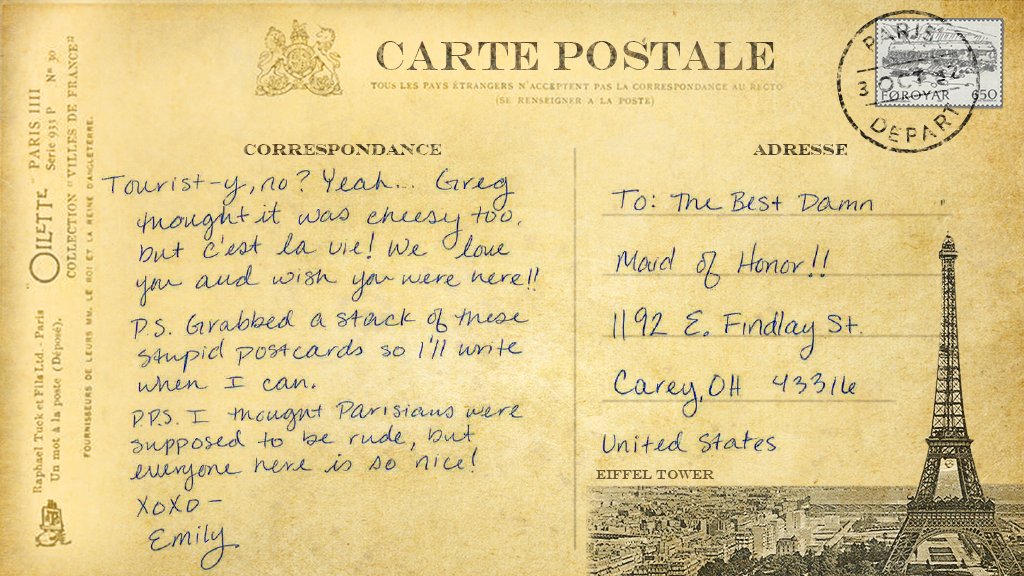 "OILETTE" PARIS IIII
Serie 933 P Nº 30
COLLECTION "VILLES DE FRANCE"
Raphael Tuck et Fils Ltd.. Paris
Un mot à la poste (Déposé).
FOURNISSEURS DE LEURS MM. LE ROI ET LA REINE D'ANGLETERRE.
CARTE POSTALE
TOUS LES PAYS ÉTRANGERS N'ACCEPTENT PAS LA CORRESPONDANCE AU RECTO
(SE RENSEIGNER A LA POSTE)
PARIS
3 OCT
DEPART
FØROYAR 650
CORRESPONDANCE
Tourist-y, no? Yeah... Greg
thought it was cheesy too.
but c'est la vie! We love
you and wish you were here!!
P.S. Grabbed a stack of these
stupid postcards so I'll write
when I can.
P.P.S. I thought Parisians were
supposed to be rude, but
everyone here is so nice!
XOXO-
Emily
ADRESSE
To: The Best Damn
Maid of Honor!!
1192 E. Findlay St.
Carey, OH 43316
United States
EIFFEL TOWER